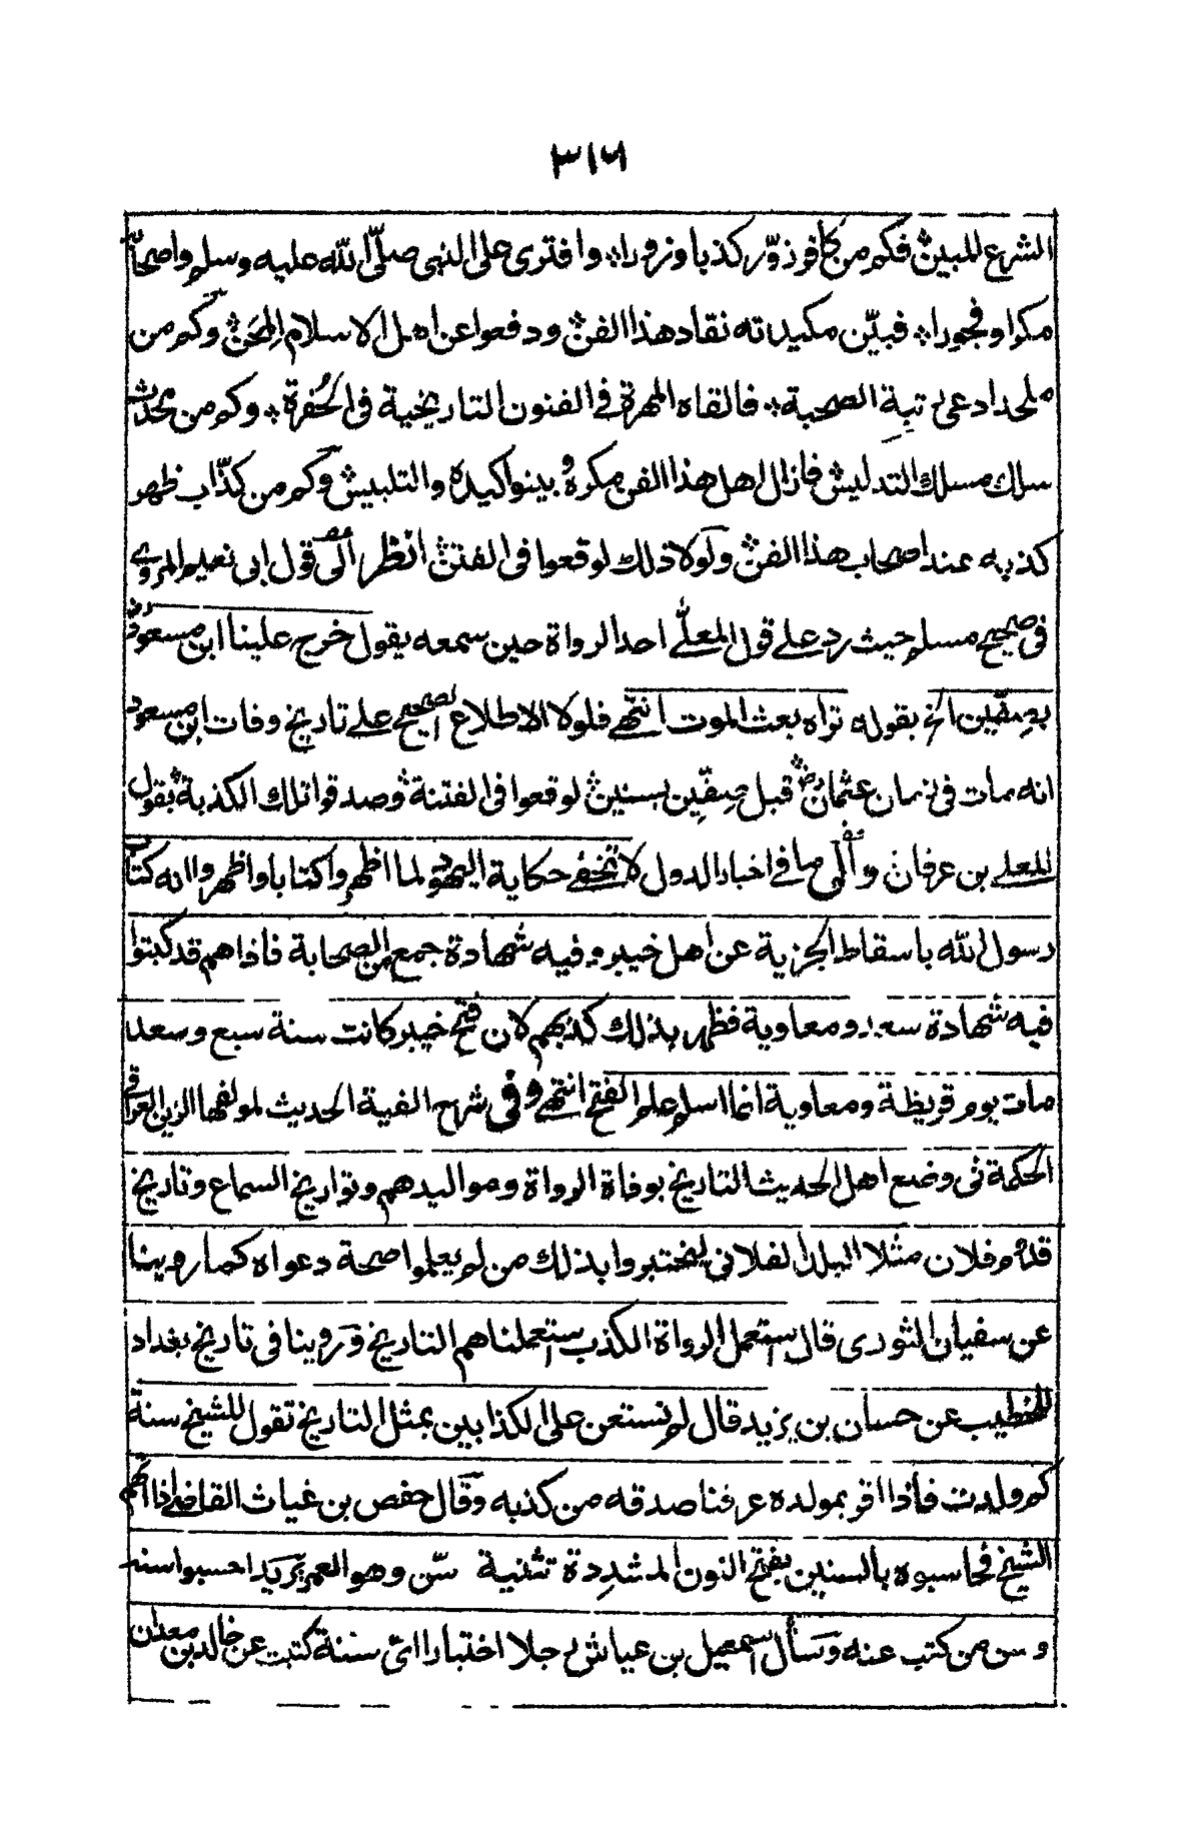 ٣١٦
الشرع المبين؛ فكم من كافر زوّر كذبا وزورا؛ وافترى على النبي صلّى الله عليه وسلم واصحابه
مكرا وفجورا؛ فبيّن مكيداته نقاد هذا الفن؛ ودفعوا عن اهل الاسلام المِحَن؛ وكم من
ملحد ادعى رتبة الصحبة؛ فالقاه المهرة في الفنون التاريخية في الحُفرة؛ وكم من محدث
سلك مسلك التدليس؛ فازال اهل هذا الفن مكره وبينوا كيده والتلبيس؛ وكم من كذّاب ظهر
كذبه عند اصحاب هذا الفن؛ ولولا ذلك لوقعوا في الفتن؛ انظر الى قول ابى نعيم المروى
في صحيح مسلم حيث رد على قول المعلّى احد الرواة حين سمعه يقول خرج علينا ابن مسعود
بصِفّين الخ بقوله تراه بعث الموت انتهى فلولا الاطلاع الصحيح على تاريخ وفات ابن مسعود
انه مات في زمان عثمان رض قبل صِفّين بسنين؛ لوقعوا في الفتنة؛ وصدقوا تلك الكذبة؛ بقول
المعلى بن عرفان؛ والى ما في اخبار الدول لا تخفى حكاية اليهود لما اظهروا كتابا واظهروا انه كتاب
رسول الله باسقاط الجزية عن اهل خيبر وفيه شهادة جمع من الصحابة فاذاهم قد كبتوا
فيه شهادة سعد ومعاوية فظهر بذلك كذبهم لان فتح خيبر كانت سنة سبع وسعد
مات يوم قريظة ومعاوية انما اسلم عام الفتح انتهى وفي شرح الفية الحديث لمولفها الزين العراقي
الحكمة في وضع اهل الحديث التاريخ بوفاة الرواة ومواليدهم وتواريخ السماع وتاريخ
قدوم فلان مثلا البلد الفلاني ليختبروا بذلك من لم يعلموا صحة دعواه كما روينا
عن سفيان الثوري قال استعمل الرواة الكذب استعملنا هم التاريخ وروينا في تاريخ بغداد
للخطيب عن حسان بن يزيد قال لم نستعن على الكذابين بمثل التاريخ تقول للشيخ سنة
كم ولدت فاذا اقر بمولده عرفنا صدقه من كذبه وقال حفص بن غياث القاضى اذا اتهم
الشيخ فحاسبوه بالسنين بفتح النون المشددة تثنية سّن وهو العمر يريد احسبوا سنه
وسن من كتب عنه وسأل اسمعيل بن عياش رجلا اختبارا اىّ سنة كتبت عن خالد بن معدان